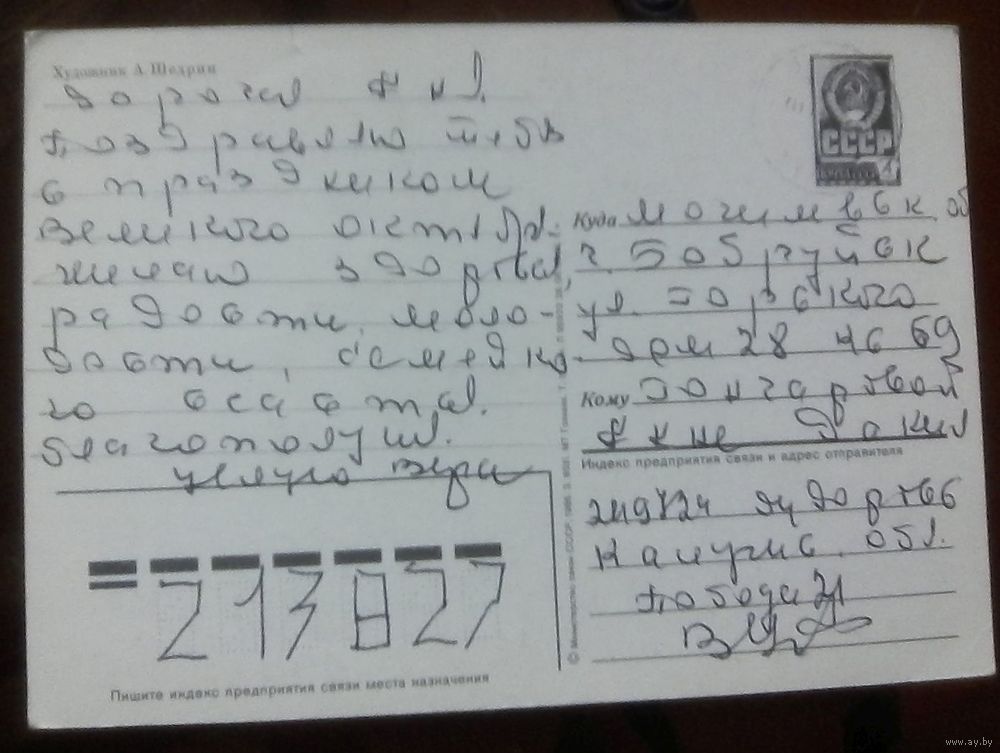 Художник А. Щедрин
дорогая Аня.
поздравляю тебя
с праздником
великого октября.
желаю здоровья,
радости, моло-
дости, семейно-
го счастья.
благополучия.
целую Вера
СССР
Куда Могилевск. об
г. Бобруйск
ул. Горького
дом 28 кв 69
Кому Гончаровой
Анне
Индекс предприятия связи и адрес отправителя
Калужс. обл.
победа 21
213827
Пишите индекс предприятия связи места назначения
www.ay.by